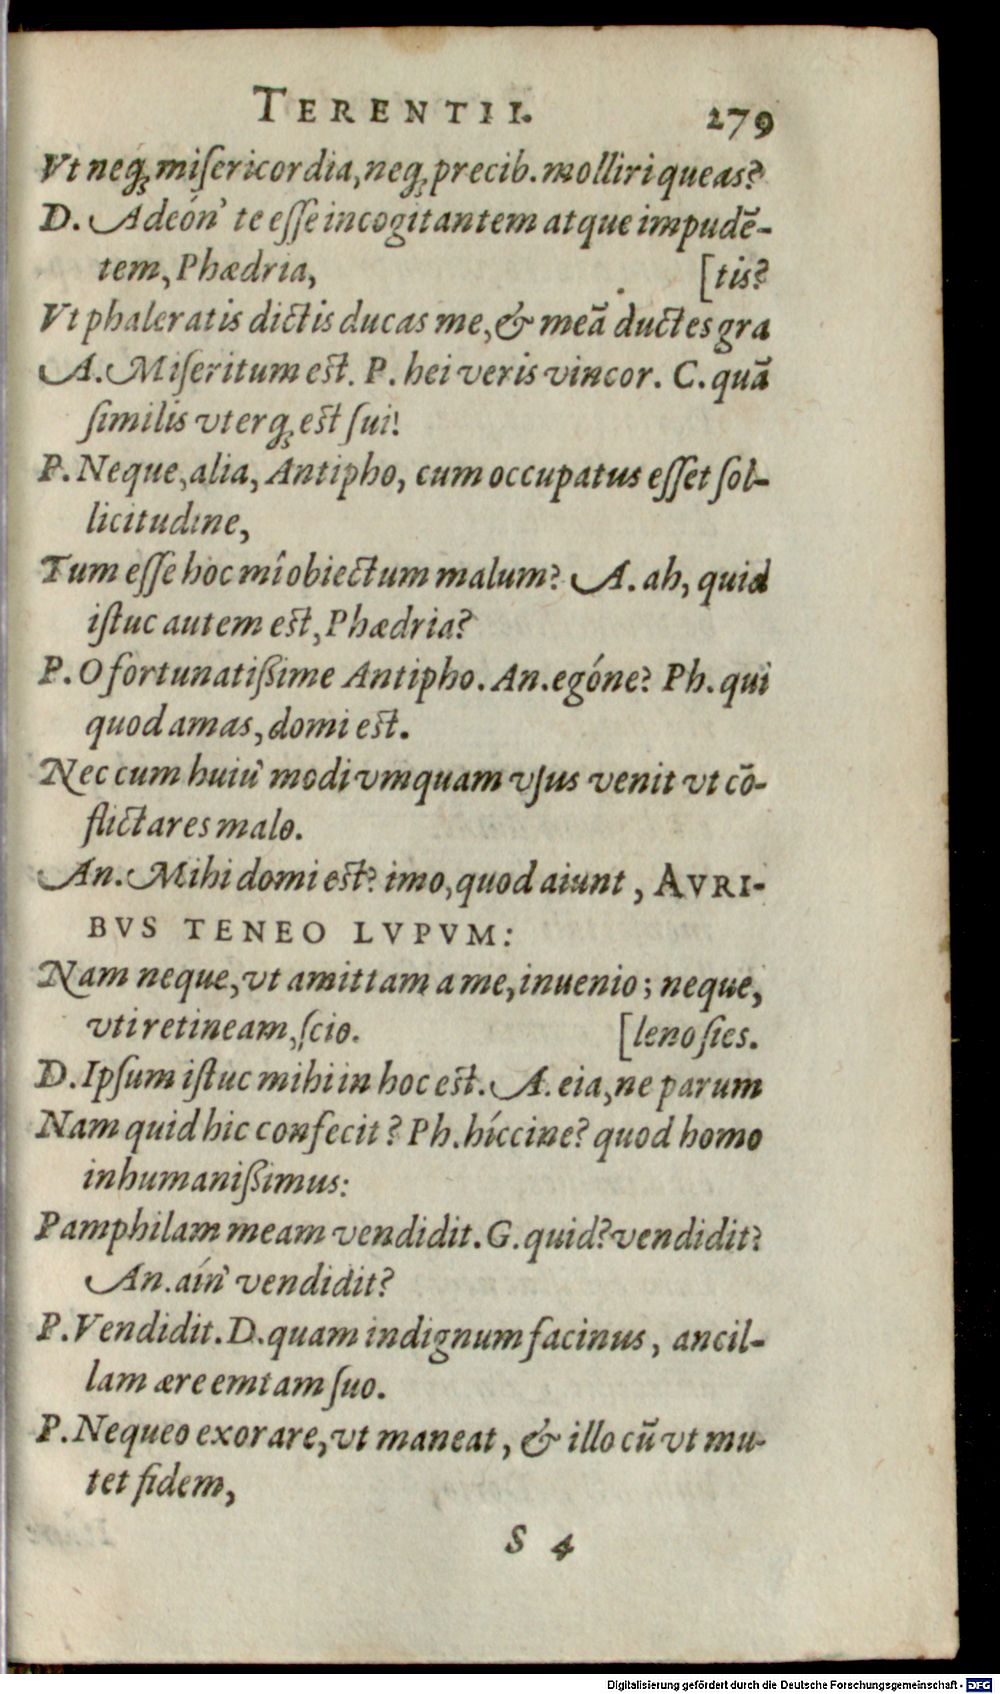 TERENTII. 279
Vt neq; miſericordia, neq; precib. molliri queas?
D. Adeón' te eſſe incogitantem atque impudē-
tem, Phædria, [tis?
Vt phaleratis dictis ducas me, & meā ductes gra
A. Miſeritum est. P. hei veris vincor. C. quā
ſimilis vterq; est ſui!
P. Neque, alia, Antipho, cum occupatus eſſet ſol-
licitudine,
Tum eſſe hoc mî obiectum malum? A. ah, quid
iſtuc autem est, Phædria?
P. O fortunatiſſime Antipho. An. egóne? Ph. qui
quod amas, domi est.
Nec cum huiu' modi vmquam vſus venit vt cō-
flictares malo.
An. Mihi domi est? imo, quod aiunt, AVRI-
BVS TENEO LVPVM:
Nam neque, vt amittam a me, inuenio; neque,
vti retineam, ſcio. [leno ſies.
D. Ipſum iſtuc mihi in hoc est. A. eia, ne parum
Nam quid hic confecit? Ph. híccine? quod homo
inhumaniſſimus:
Pamphilam meam vendidit. G. quid? vendidit?
An. aín' vendidit?
P. Vendidit. D. quam indignum facinus, ancil-
lam ære emtam ſuo.
P. Nequeo exorare, vt maneat, & illo cū vt mu-
tet fidem,
S 4
Digitalisierung gefördert durch die Deutsche Forschungsgemeinschaft - DFG